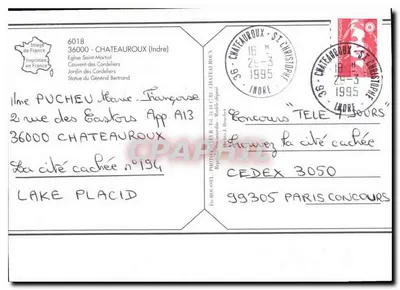 Image
de France
Imprimée
en France
6018
36000 - CHATEAUROUX (Indre)
Eglise Saint Martial
Couvent des Cordeliers
Jardin des Cordeliers
Statue du Général Bertrand
36 - CHATEAUROUX - ST CHRISTOPHE
16 H
25-3
1995
INDRE
36 - CHATEAUROUX - ST CHRISTOPHE
16 H
25-3
1995
INDRE
Mme PUCHEU Marie-Françoise
2 rue des Castors App A13
36000 CHATEAUROUX
La cité cachée n° 194
LAKE PLACID
Concours "TELE 7 JOURS"
Trouvez la cité cachée
CEDEX 3050
99305 PARIS CONCOURS
CPARAMA